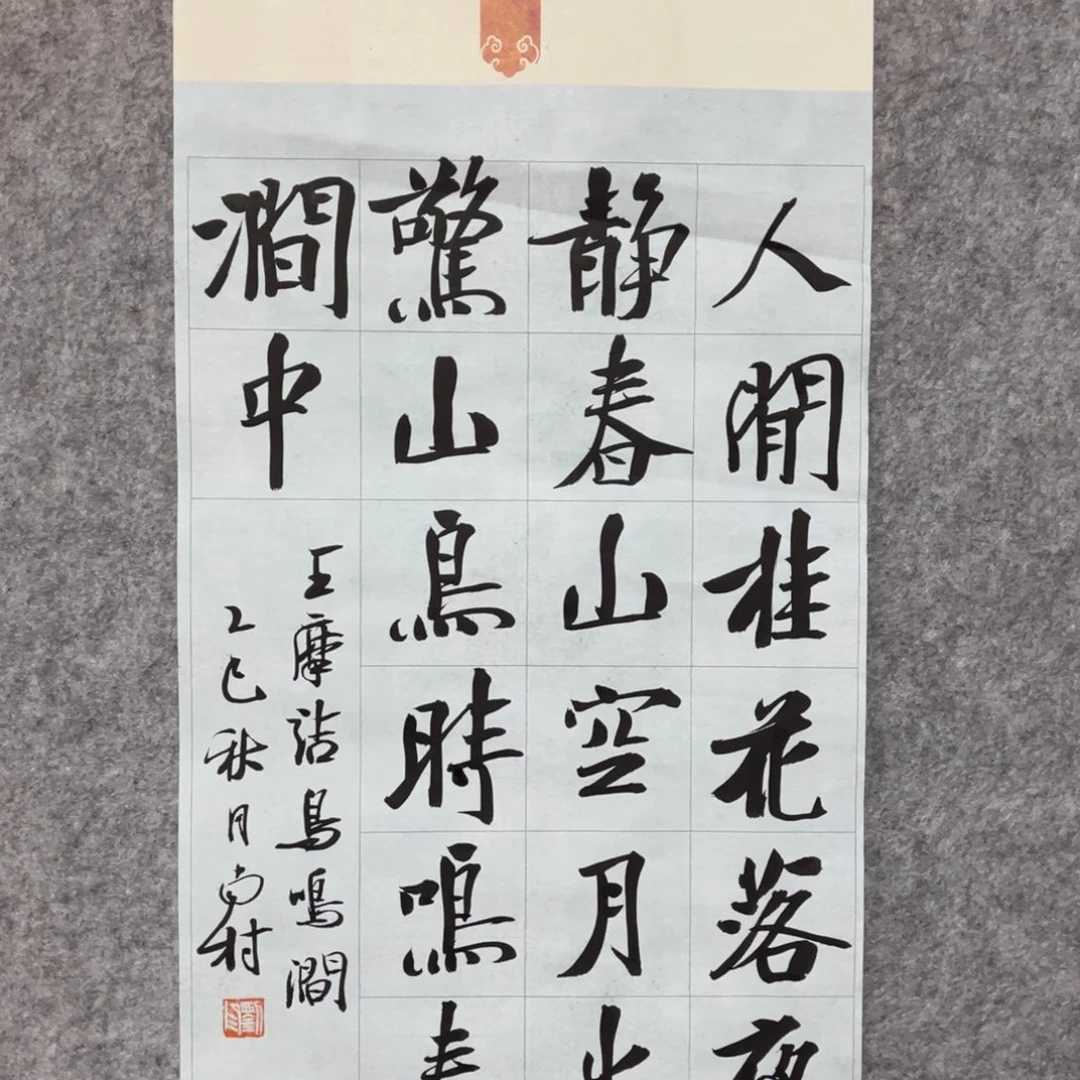 人閒桂花落夜
静春山空月出
驚山鳥時鳴春
澗中
王摩詰鳥鳴澗
乙巳秋月尚村